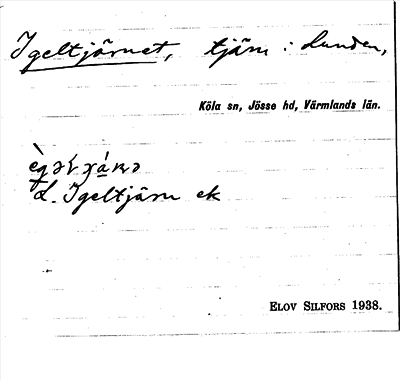 Igeltjärnet, tjärn i Lunden,
Köla sn, Jösse hd, Värmlands län.
d. Igeltjärn ek
ELOV SILFORS 1938.